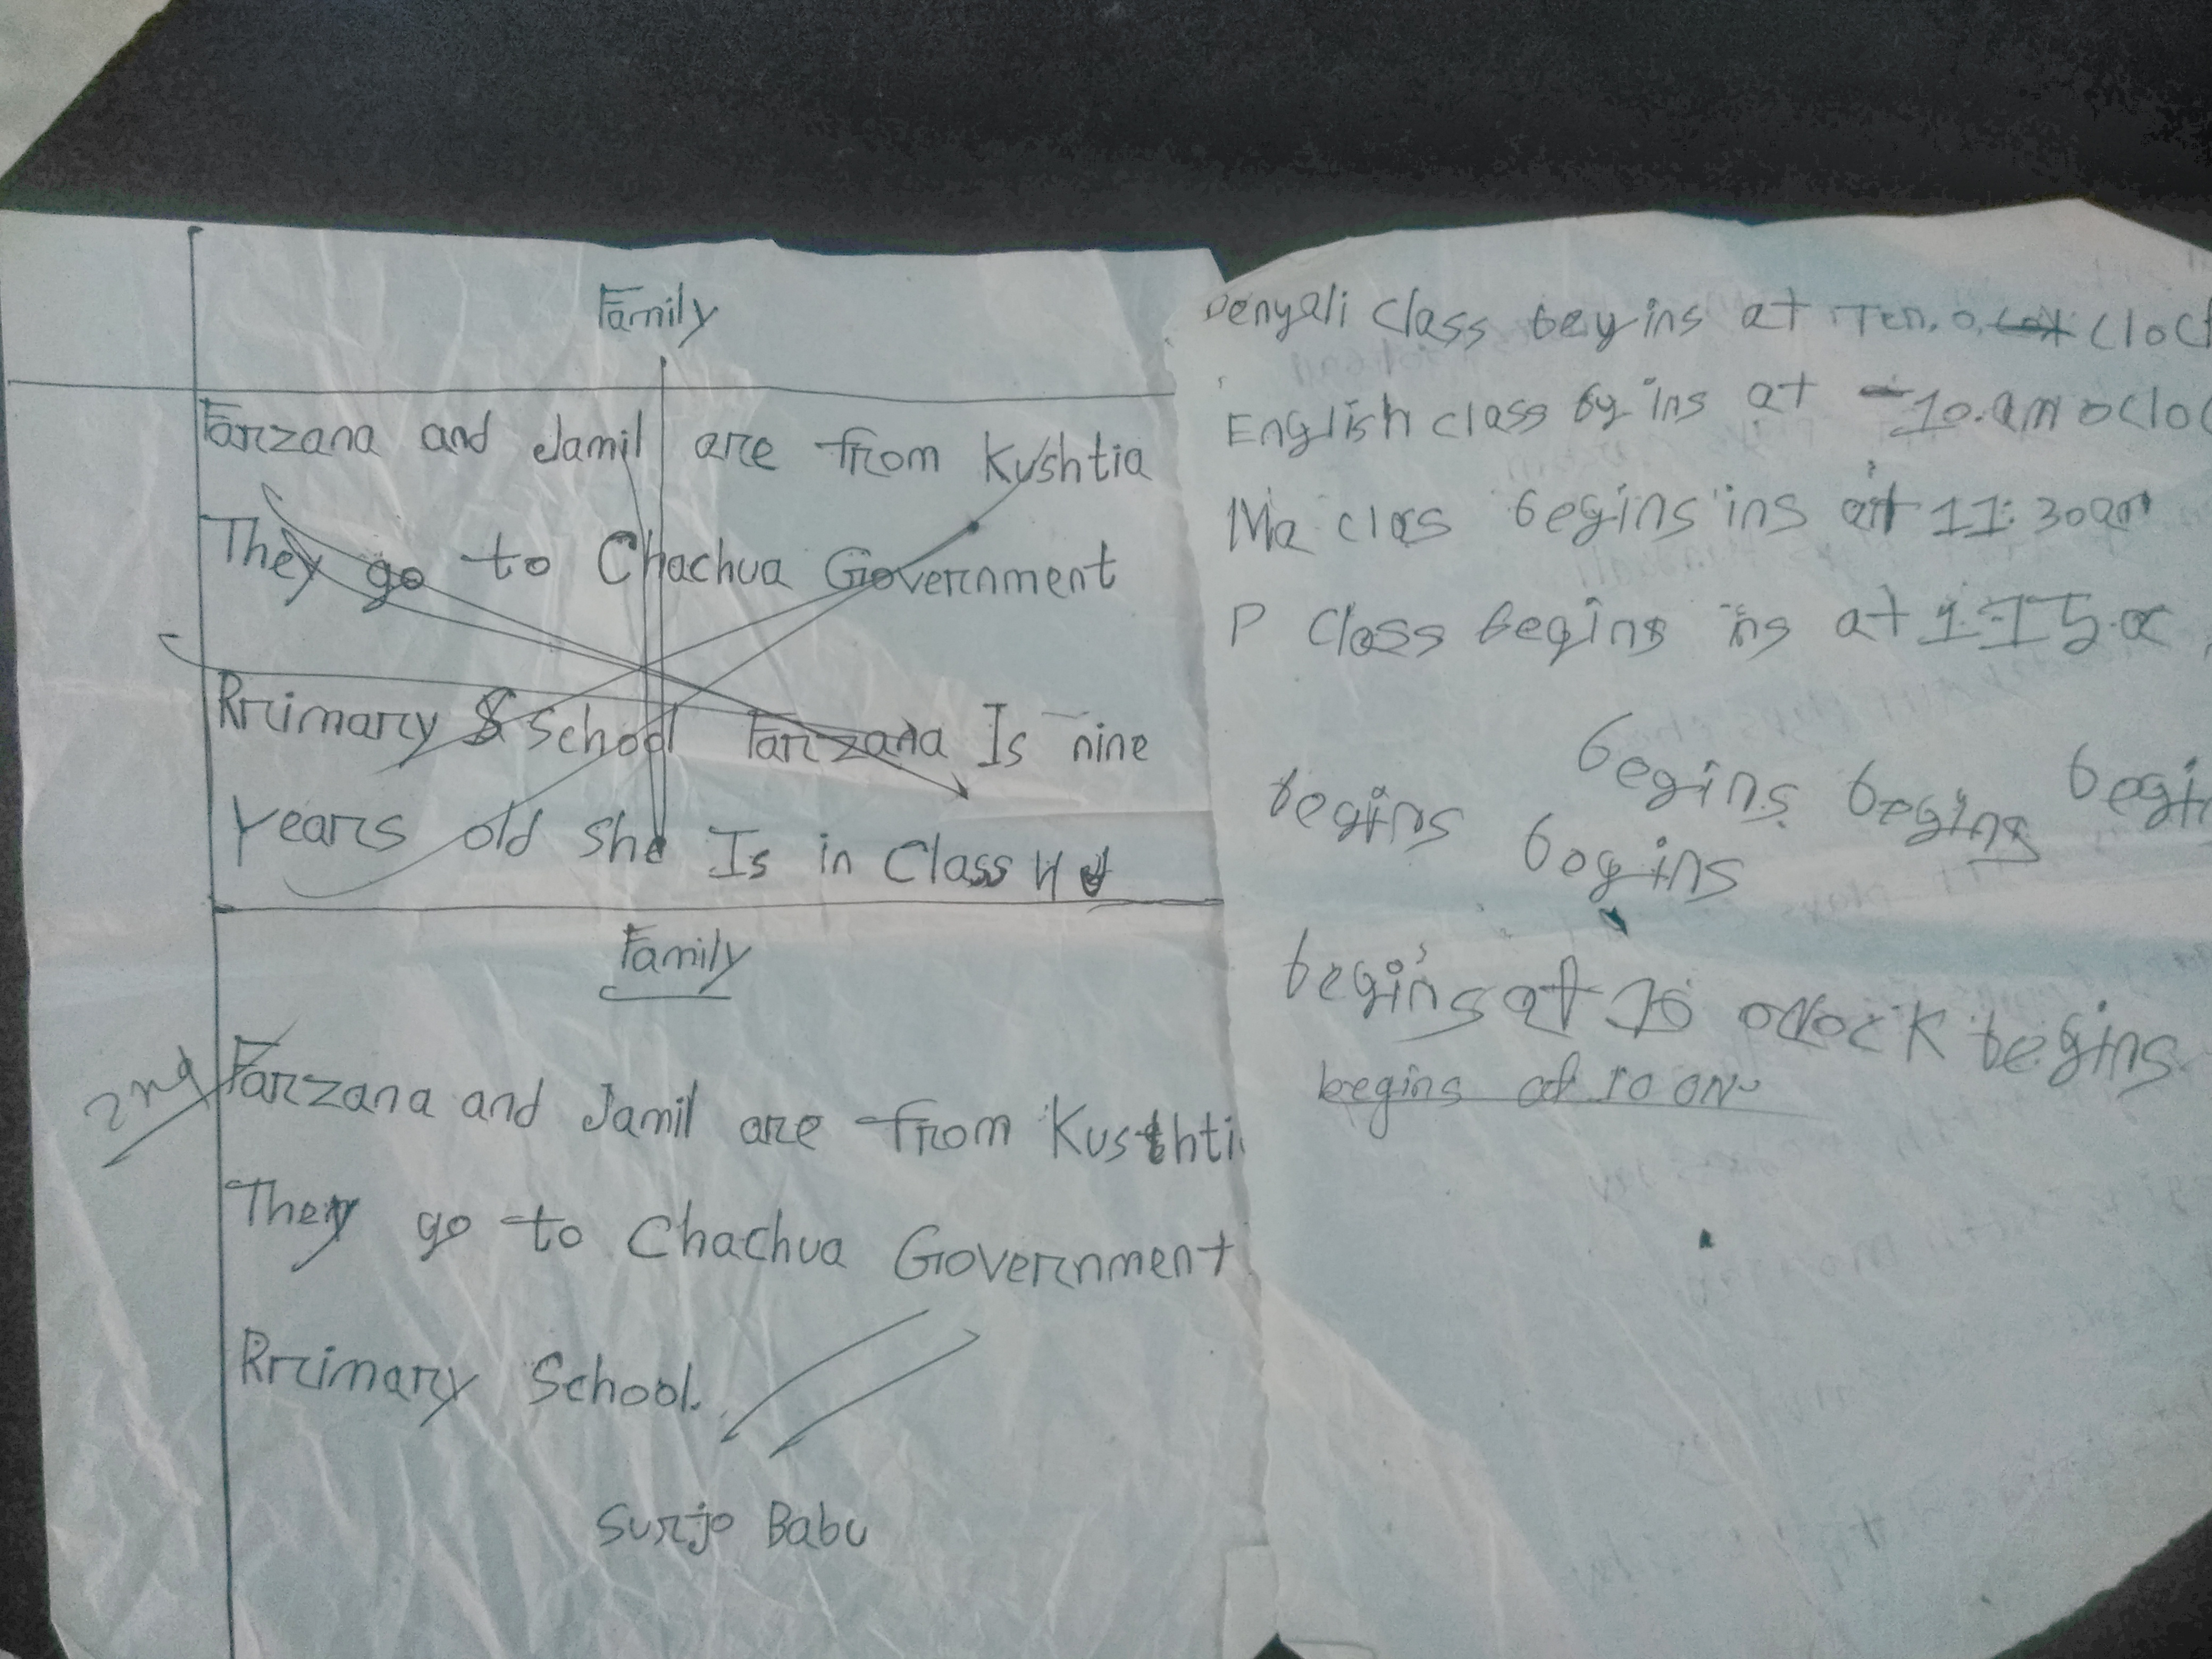 Family
Farzana and Jamil are from Kushtia
They go to Chachua Government
Rrimary School Farzana Is nine
years old she Is in Class
Family
2nd
Farzana and Jamil are from Kusthti
They go to Chachua Government
Rrimary School.
Surjo Babu
Bengali Class begins at Ten. o, Cloc
English class by ins at 10.am oCloc
Ma clas begins ins at 11:30am
P Class begins ins at
begins begins begins begi
begins
begins at 10 oclock begins
begins at 10